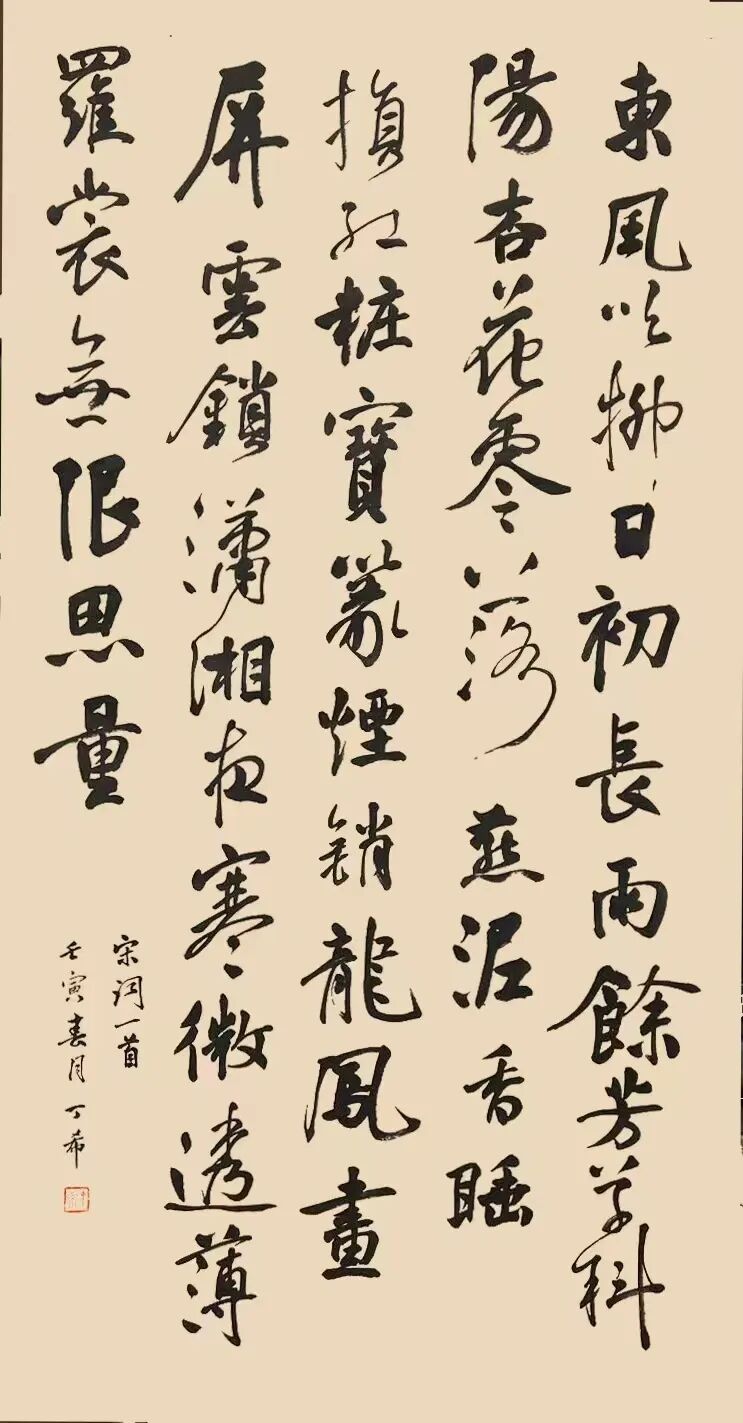 東風吹柳日初長雨餘芳草斜
陽杏花零落燕泥香睡
損紅粧寶篆煙銷龍鳳畫
屏雲鎖瀟湘夜寒微透薄
羅裳無限思量
宋詞一首
壬寅春月丁希